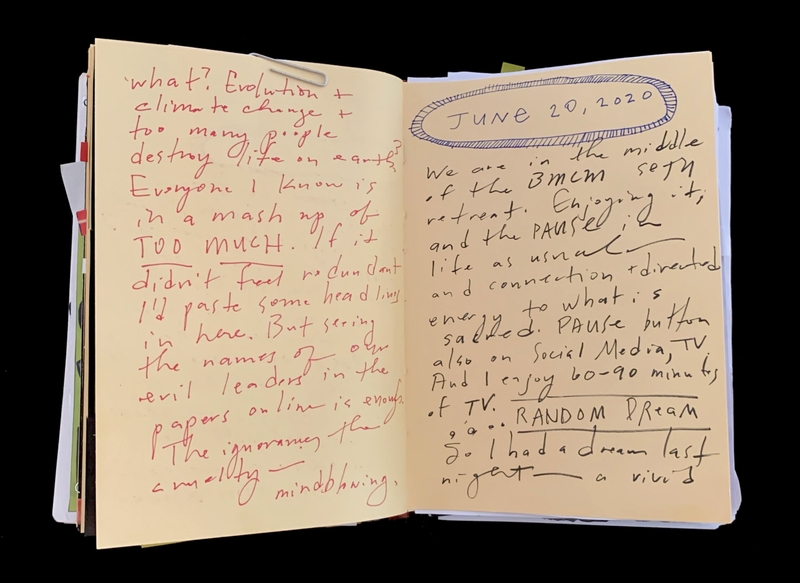 what? Evolution +
climate change +
too many people
destroy life on earth?
Everyone I know is
in a mash up of
TOO MUCH. If it
didn't feel redundant
I'd paste some headlines
in here. But seeing
the names of our
evil leaders in the
papers online is enough.
The ignorance, the
cruelty—
mindblowing.
JUNE 20, 2020
We are in the middle
of the BMCM
retreat. Enjoying it,
and the PAUSE in
life as usual—
and connection + directed
energy to what is
sacred. PAUSE button
also on Social Media, TV
And I enjoy 60-90 minutes
of TV.
RANDOM DREAM
So I had a dream last
night— a vivid